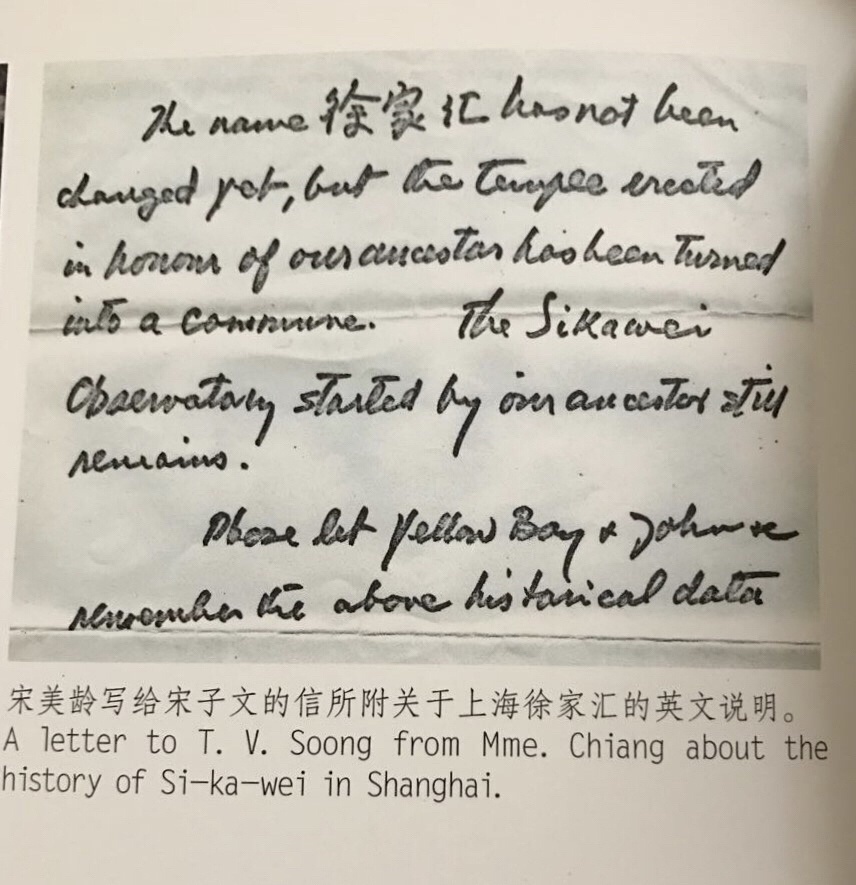 The name 徐家汇 has not been
changed yet, but the temple erected
in honour of our ancestor has been turned
into a commune. The Sikawei
Observatory started by our ancestor still
remains.
Please let Yellow Boy & John
remember the above historical data
宋美龄写给宋子文的信所附关于上海徐家汇的英文说明。
A letter to T. V. Soong from Mme. Chiang about the
history of Si-ka-wei in Shanghai.